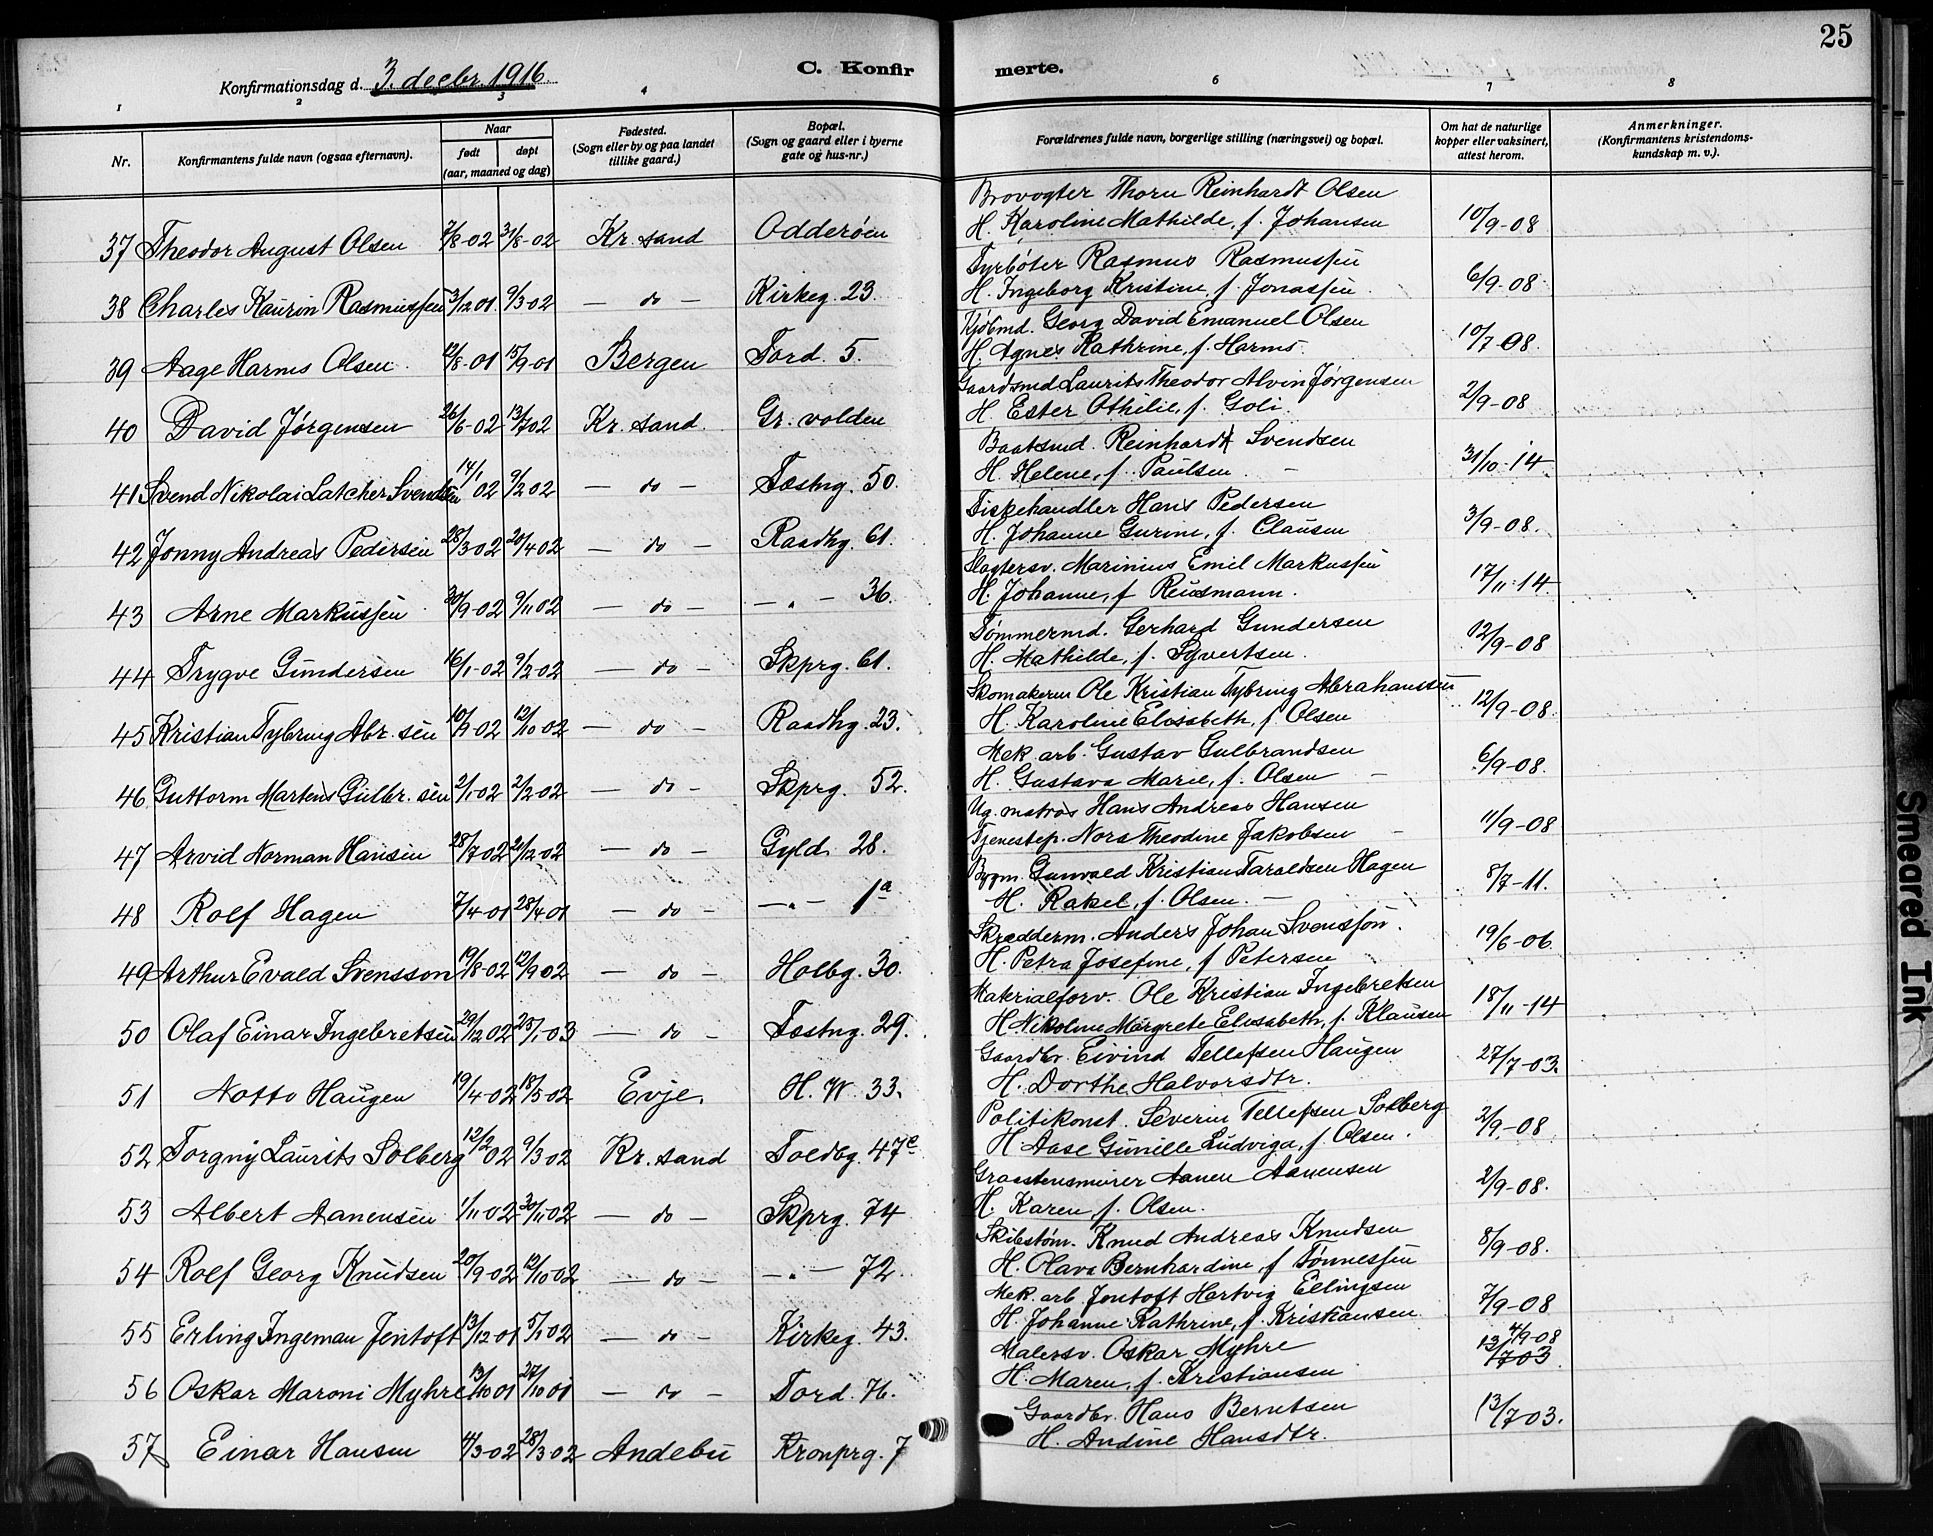 25
Konfirmationsdag d. 3. decbr. 1916.
C. Konfirmerte.
1 2 3 4 6 7 8
Nr.
Konfirmantens fulde navn (ogsaa efternavn).
Naar
født
døpt
(aar, maaned og dag)
Fødested.
(Sogn eller by og paa landet
tillike gaard.)
Bopæl.
(Sogn og gaard eller i byerne
gate og hus-nr.)
Forældrenes fulde navn, borgerlige stilling (næringsvei) og bopæl.
Om hat de naturlige
kopper eller vaksinert,
attest herom.
Anmerkninger.
(Konfirmantens kristendoms-
kundskap m. v.).
37 Theodor August Olsen 7/8-02 31/8-02 Kr. sand Odderøen
Brovogter Thorn Reinhardt Olsen
H. Karoline Mathilde, f. Johansen 10/9-08
38 Charles Kaurin Rasmussen 3/12 01. 9/3-02 — do — Kirkeg. 23.
Fyrbøter Rasmus Rasmussen
H. Ingeborg Kristine, f. Jonassen. 6/9-08
39 Aage Harms Olsen. 12/8-01 15/9-01 Bergen Tord. 5.
Kjøbmd. Georg David Emanuel Olsen
H. Agnes Kathrine, f. Harms. 10/7-08.
40 David Jørgensen 26/6-02 13/7 02 Kr. sand. Gr. volden
Gaardsmd Laurits Theodor Alvin Jørgensen
H. Ester Othilie, f. Goli. 2/9-08
41 Svend Nikolai Latcher Svendsen 14/1 02 9/2 02 — do — Fæstng. 50.
Baatsmd. Reinhardt Svendsen
H. Helene, f. Paulsen. — 31/10-14.
42 Jonny Andreas Pedersen 28/3-02 20/4 02 — do — Raadhg. 61.
Fiskehandler Hans Pedersen
H. Johanne Gurine, f. Clausen 3/9-08.
43 Arne Markussen 30/9-02 9/11 02 — do — — „ — 36.
Slagtersv. Marinius Emil Markussen
H. Johanne, f. Reusmann. 17/11-14.
44 Trygve Gundersen 16/1-02 9/2-02 — do — Skprg. 61.
Tømmermd. Gerhard Gundersen
H. Mathilde, f. Syvertsen. 12/9-08
45 Kristian Tybring Abr. sen 10/9-02 12/10 02 — do — Raadhg. 23.
Skomakerm Ole Kristian Tybring Abrahamsen
H. Karoline Elisabeth, f. Olsen 12/9-08.
46 Guttorm Martens Gulbr. sen 2/1-02 2/2-02 — do — Skprg. 52.
Mek. arb. Gustav Gulbrandsen
H. Gustava Marie, f. Olsen — 6/9-08.
47 Arvid Norman Hansen 28/7 02 21/12-02 — do — Gyld. 28.
Ug. matros Hans Andreas Hansen
Tjenestep. Nora Theodine Jakobsen — 11/9-08
48 Rolf Hagen 7/4-01 28/4 01 — do — — „ — 1a
Bygm. Gunvald Kristian Taraldsen Hagen
H. Rakel, f. Olsen. — 8/7-11.
49 Arthur Evald Svensson 19/8-02 12/9 02 — do — Holbg. 30.
Skrædderm. Anders Johan Svensson.
H. Petra Josefine, f. Petersen 19/6-06.
50 Olaf Einar Ingebretsen 29/12 02 25/1-03 — do — Fæstng. 29.
Materialforv. Ole Kristian Ingebretsen
H. Nikoline Margrete Elisabeth, f. Klausen 18/11-14
51 Notto Haugen 19/4-02 18/5-02 Evje. H. W. 33.
Gaardbr. Eivind Tellefsen Haugen
H. Dorthe Halvorsdtr. 27/7-03.
52 Torgny Laurits Solberg 12/2 02 9/3 02 Kr. sand Toldbg. 47c
Politikonst. Severin Tellefsen Solberg
H. Aase Gunille Ludviga, f. Olsen. 3/9-08
53 Albert Aanensen 1/11-02 30/11-02 — do — Skprg. 74
Graastensmurer Aanen Aanensen
H. Karen, f. Olsen. 2/9-08.
54 Rolf Georg Knudsen 20/9-02 12/10-02 — do — — „ — 72.
Skibstøm. Knud Andreas Knudsen
H. Olava Bernhardine, f. Tønnessen 8/9-08.
55 Erling Ingeman Jentoft 13/12 01 5/1 02 — do — Kirkeg. 43.
Mek. arb. Jentoft Hertvig Ellingsen
H. Johanne Kathrine, f. Kristiansen 7/9-08
56 Oskar Maroni Myhre 13/10 01 27/10 01 — do — Tord. 76.
Malersv. Oskar Myhre
H. Maren, f. Kristiansen 4/9-08
13/7 03.
57 Einar Hansen 4/3-02 28/3 02 Andebu Kronprg. 7
Gaardbr. Hans Berntsen
H. Andine Hansdtr. 13/7-03.
Smeared Ink